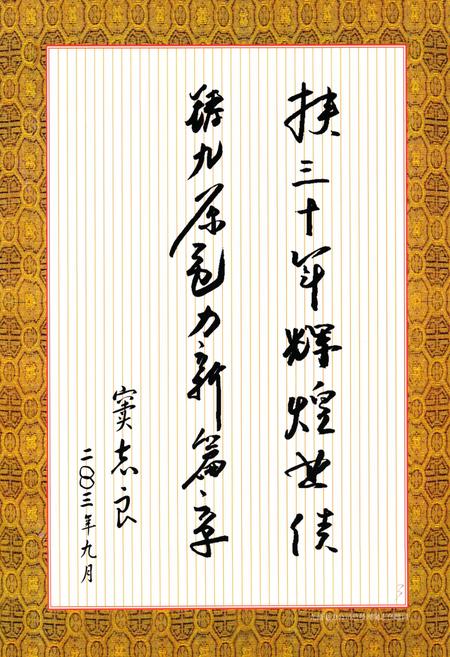 扶三十年辉煌业绩
铸九原电力新篇章
窦志良
二00三年九月